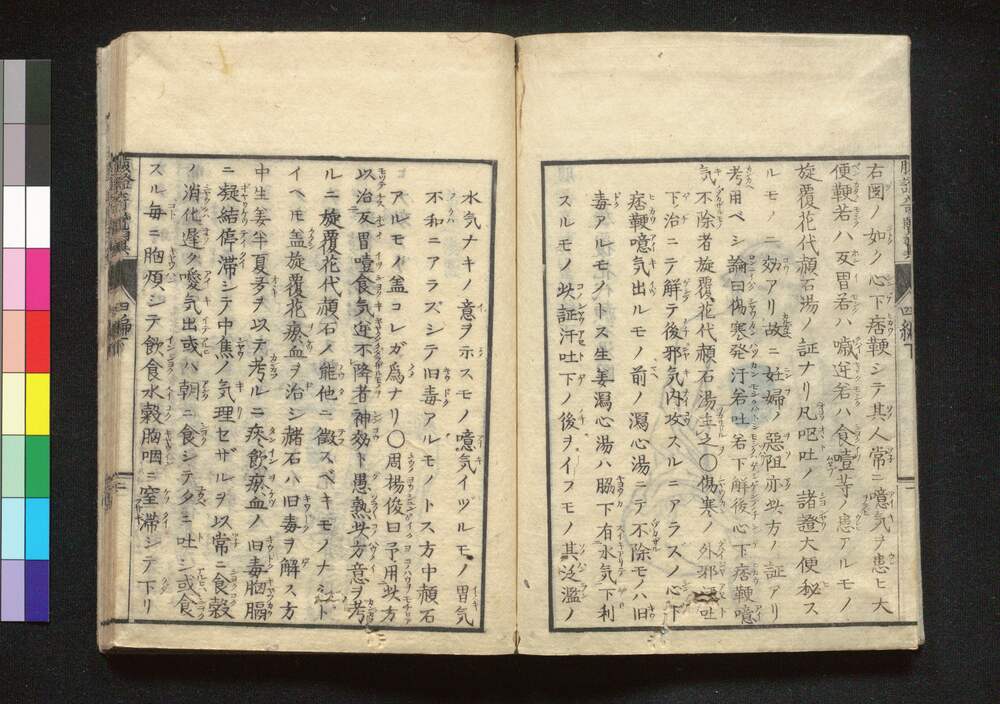 右図ノ如ク心下痞鞕シテ其人常ニ噫気ヲ患ヒ大
便鞕若ハ反胃若ハ噦逆若ハ食噎等ノ患アルモノ
旋覆花代赭石湯ノ証ナリ凡嘔吐ノ諸證大便秘ス
ルモノニ効アリ故ニ妊婦ノ惡阻亦此方ノ証アリ
考用ベシ論曰傷寒発汗若吐若下解後心下痞鞕噫
気不除者旋覆花代赭石湯主之〇傷寒ノ外邪吐
下ノ治ニテ解テ後邪気内攻スルニアラスノ心下
痞鞕噫気出ルモノ前ノ瀉心湯ニテ不除モノハ旧
毒アルモノトス生姜瀉心湯ハ脇下有水気下利
スルモノ此証汗吐下ノ後ヲイフモノ其泛濫ノ
水気ナキノ意ヲ示スモノ噫気イヅルモノ胃気
不和ニアラズシテ旧毒アルモノトス方中赭石
アルモノ盖コレガ為ナリ〇周揚俊曰予用此方
以治反胃噎食気逆不降者神効ト愚熟此方意ヲ考
ルニ旋覆花代赭石ノ能他ニ徴スベキモノナシト
イヘ𪜈盖旋覆花瘀血ヲ治シ赭石ハ旧毒ヲ解ス方
中生姜半夏等ヲ以テ考ルニ痰飲瘀血ノ旧毒胸膈
ニ凝結停滞シテ中焦ノ気理セザルヲ以常ニ食穀
ノ消化遅ク噯気出或ハ朝ニ食シテ夕ニ吐シ或食
スル毎ニ胸煩シテ飲食水穀胸咽ニ窒滞シテ下リ
腹證奇覽翼
四編下